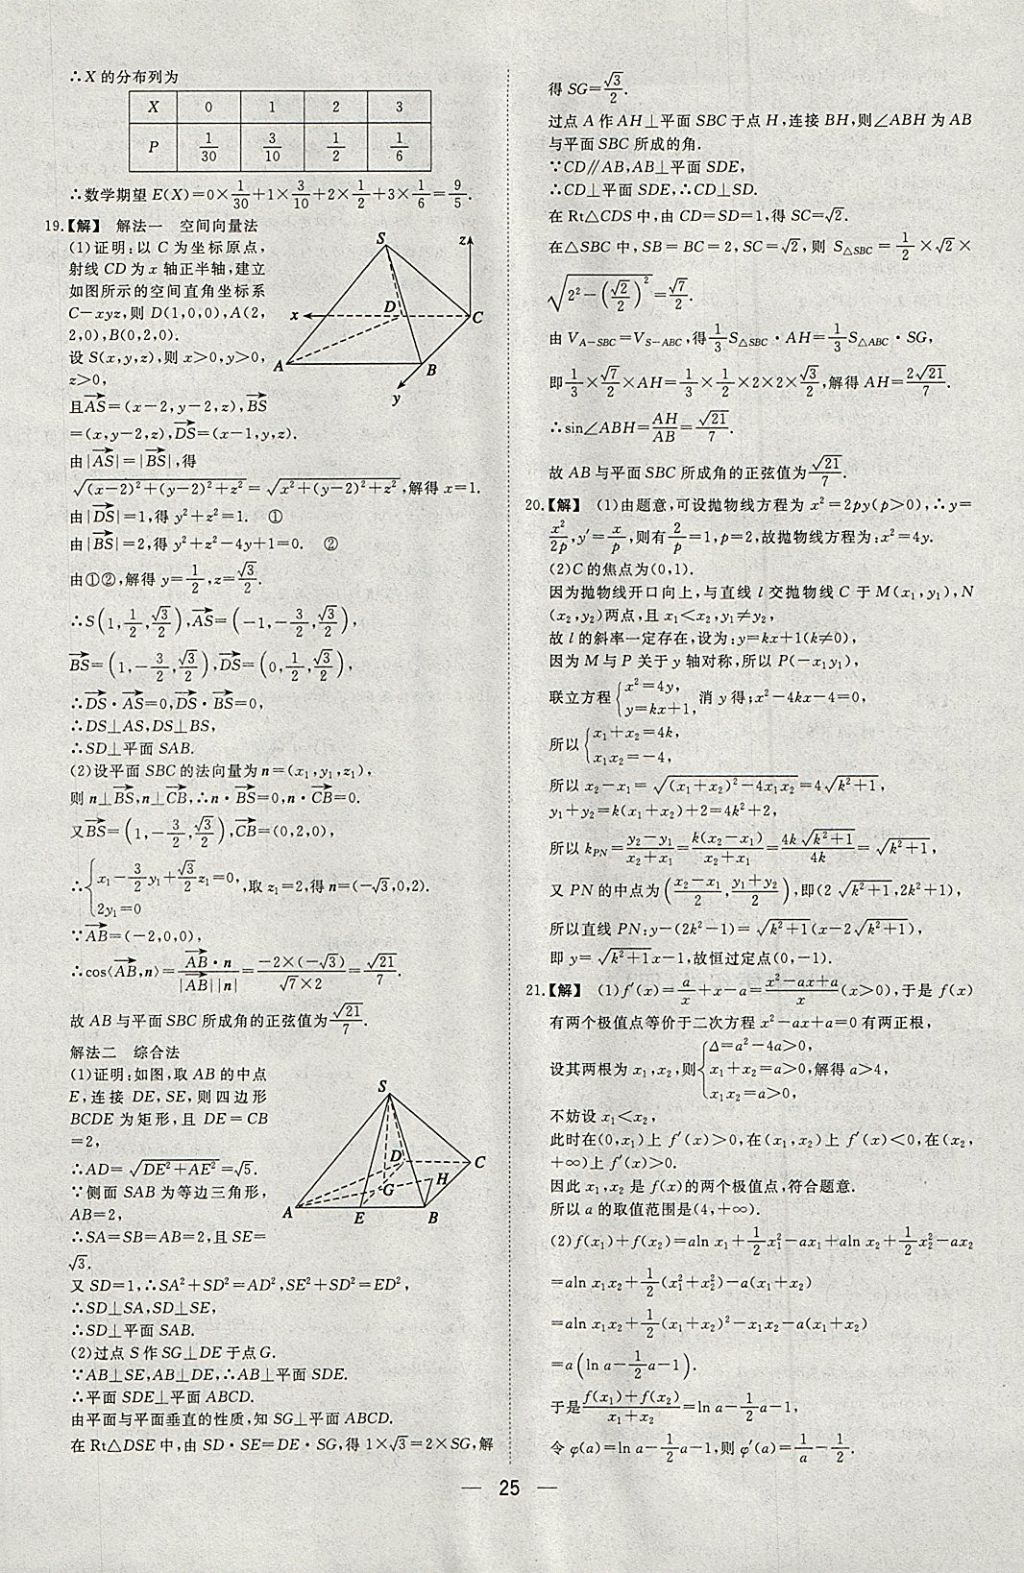 ∴X 的分布列为
X 0 1 2 3
P 1/30 3/10 1/2 1/6
∴数学期望 E(X)=0×1/30+1×3/10+2×1/2+3×1/6=9/5.
19.【解】 解法一 空间向量法
(1)证明:以 C 为坐标原点,
射线 CD 为 x 轴正半轴,建立
如图所示的空间直角坐标系
C-xyz,则 D(1,0,0),A(2,
2,0),B(0,2,0).
设 S(x,y,z),则 x>0,y>0,
z>0,
S z x D C A B y
且AS→=(x-2,y-2,z),BS→
=(x,y-2,z),DS→=(x-1,y,z).
由|AS→|=|BS→|,得
√((x-2)²+(y-2)²+z²)=√(x²+(y-2)²+z²),解得 x=1.
由|DS→|=1,得 y²+z²=1. ①
由|BS→|=2,得 y²+z²-4y+1=0. ②
由①②,解得 y=1/2,z=√3/2.
∴S(1,1/2,√3/2),AS→=(-1,-3/2,√3/2),
BS→=(1,-3/2,√3/2),DS→=(0,1/2,√3/2),
∴DS→·AS→=0,DS→·BS→=0,
∴DS⊥AS,DS⊥BS,
∴SD⊥平面 SAB.
(2)设平面 SBC 的法向量为 n=(x₁,y₁,z₁),
则 n⊥BS→,n⊥CB→,∴n·BS→=0,n·CB→=0.
又BS→=(1,-3/2,√3/2),CB→=(0,2,0),
∴{x₁-3/2y₁+√3/2z₁=0, 2y₁=0 ,取 z₁=2,得 n=(-√3,0,2).
∵AB→=(-2,0,0),
∴cos⟨AB→,n⟩=AB→·n/|AB→||n|=-2×(-√3)/√7×2=√21/7.
故 AB 与平面 SBC 所成角的正弦值为√21/7.
解法二 综合法
(1)证明:如图,取 AB 的中点
E,连接 DE,SE,则四边形
BCDE 为矩形,且 DE=CB
=2,
∴AD=√(DE²+AE²)=√5.
∵侧面 SAB 为等边三角形,
AB=2,
∴SA=SB=AB=2,且 SE=
√3.
S D C G H A E B
又 SD=1,∴SA²+SD²=AD²,SE²+SD²=ED²,
∴SD⊥SA,SD⊥SE,
∴SD⊥平面 SAB.
(2)过点 S 作 SG⊥DE 于点 G.
∵AB⊥SE,AB⊥DE,∴AB⊥平面 SDE.
∴平面 SDE⊥平面 ABCD.
由平面与平面垂直的性质,知 SG⊥平面 ABCD.
在 Rt△DSE 中,由 SD·SE=DE·SG,得 1×√3=2×SG,解
得 SG=√3/2.
过点 A 作 AH⊥平面 SBC 于点 H,连接 BH,则∠ABH 为 AB
与平面 SBC 所成的角.
∵CD∥AB,AB⊥平面 SDE,
∴CD⊥平面 SDE,∴CD⊥SD.
在 Rt△CDS 中,由 CD=SD=1,得 SC=√2.
在△SBC 中,SB=BC=2,SC=√2,则 S△SBC=1/2×√2×
√(2²-(√2/2)²)=√7/2.
由 V_{A-SBC}=V_{S-ABC},得1/3S△SBC·AH=1/3S△ABC·SG,
即1/3×√7/2×AH=1/3×1/2×2×2×√3/2,解得 AH=2√21/7.
∴sin∠ABH=AH/AB=√21/7.
故 AB 与平面 SBC 所成角的正弦值为√21/7.
20.【解】 (1)由题意,可设抛物线方程为 x²=2py(p>0),∴y=
x²/2p,y′=x/p,则有2/p=1,p=2,故抛物线方程为:x²=4y.
(2)C 的焦点为(0,1).
因为抛物线开口向上,与直线 l 交抛物线 C 于 M(x₁,y₁),N
(x₂,y₂)两点,且 x₁<x₂,y₁≠y₂,
故 l 的斜率一定存在,设为:y=kx+1(k≠0),
因为 M 与 P 关于 y 轴对称,所以 P(-x₁y₁),
联立方程{x²=4y, y=kx+1, 消 y 得;x²-4kx-4=0,
所以{x₁+x₂=4k, x₁x₂=-4,
所以 x₂-x₁=√((x₁+x₂)²-4x₁x₂)=4√(k²+1),
y₁+y₂=k(x₁+x₂)+2=4k²+2,
所以 k_PN=y₂-y₁/x₂+x₁=k(x₂-x₁)/x₂+x₁=4k√(k²+1)/4k=√(k²+1),
又 PN 的中点为(x₂-x₁/2,y₁+y₂/2),即(2√(k²+1),2k²+1),
所以直线 PN:y-(2k²-1)=√(k²+1)(x-2√(k²+1)),
即 y=√(k²+1)x-1,故恒过定点(0,-1).
21.【解】 (1)f′(x)=a/x+x-a=x²-ax+a/x(x>0),于是 f(x)
有两个极值点等价于二次方程 x²-ax+a=0 有两正根,
设其两根为 x₁,x₂,则{Δ=a²-4a>0, x₁+x₂=a>0, x₁x₂=a>0, 解得 a>4,
不妨设 x₁<x₂,
此时在(0,x₁)上 f′(x)>0,在(x₁,x₂)上 f′(x)<0,在(x₂,
+∞)上 f′(x)>0.
因此 x₁,x₂ 是 f(x)的两个极值点,符合题意.
所以 a 的取值范围是(4,+∞).
(2)f(x₁)+f(x₂)=aln x₁+1/2x₁²-ax₁+aln x₂+1/2x₂²-ax₂
=aln x₁x₂+1/2(x₁²+x₂²)-a(x₁+x₂)
=aln x₁x₂+1/2(x₁+x₂)²-x₁x₂-a(x₁+x₂)
=a(ln a-1/2a-1).
于是f(x₁)+f(x₂)/x₁+x₂=ln a-1/2a-1,
令 φ(a)=ln a-1/2a-1,则 φ′(a)=1/a-1/2.
— 25 —